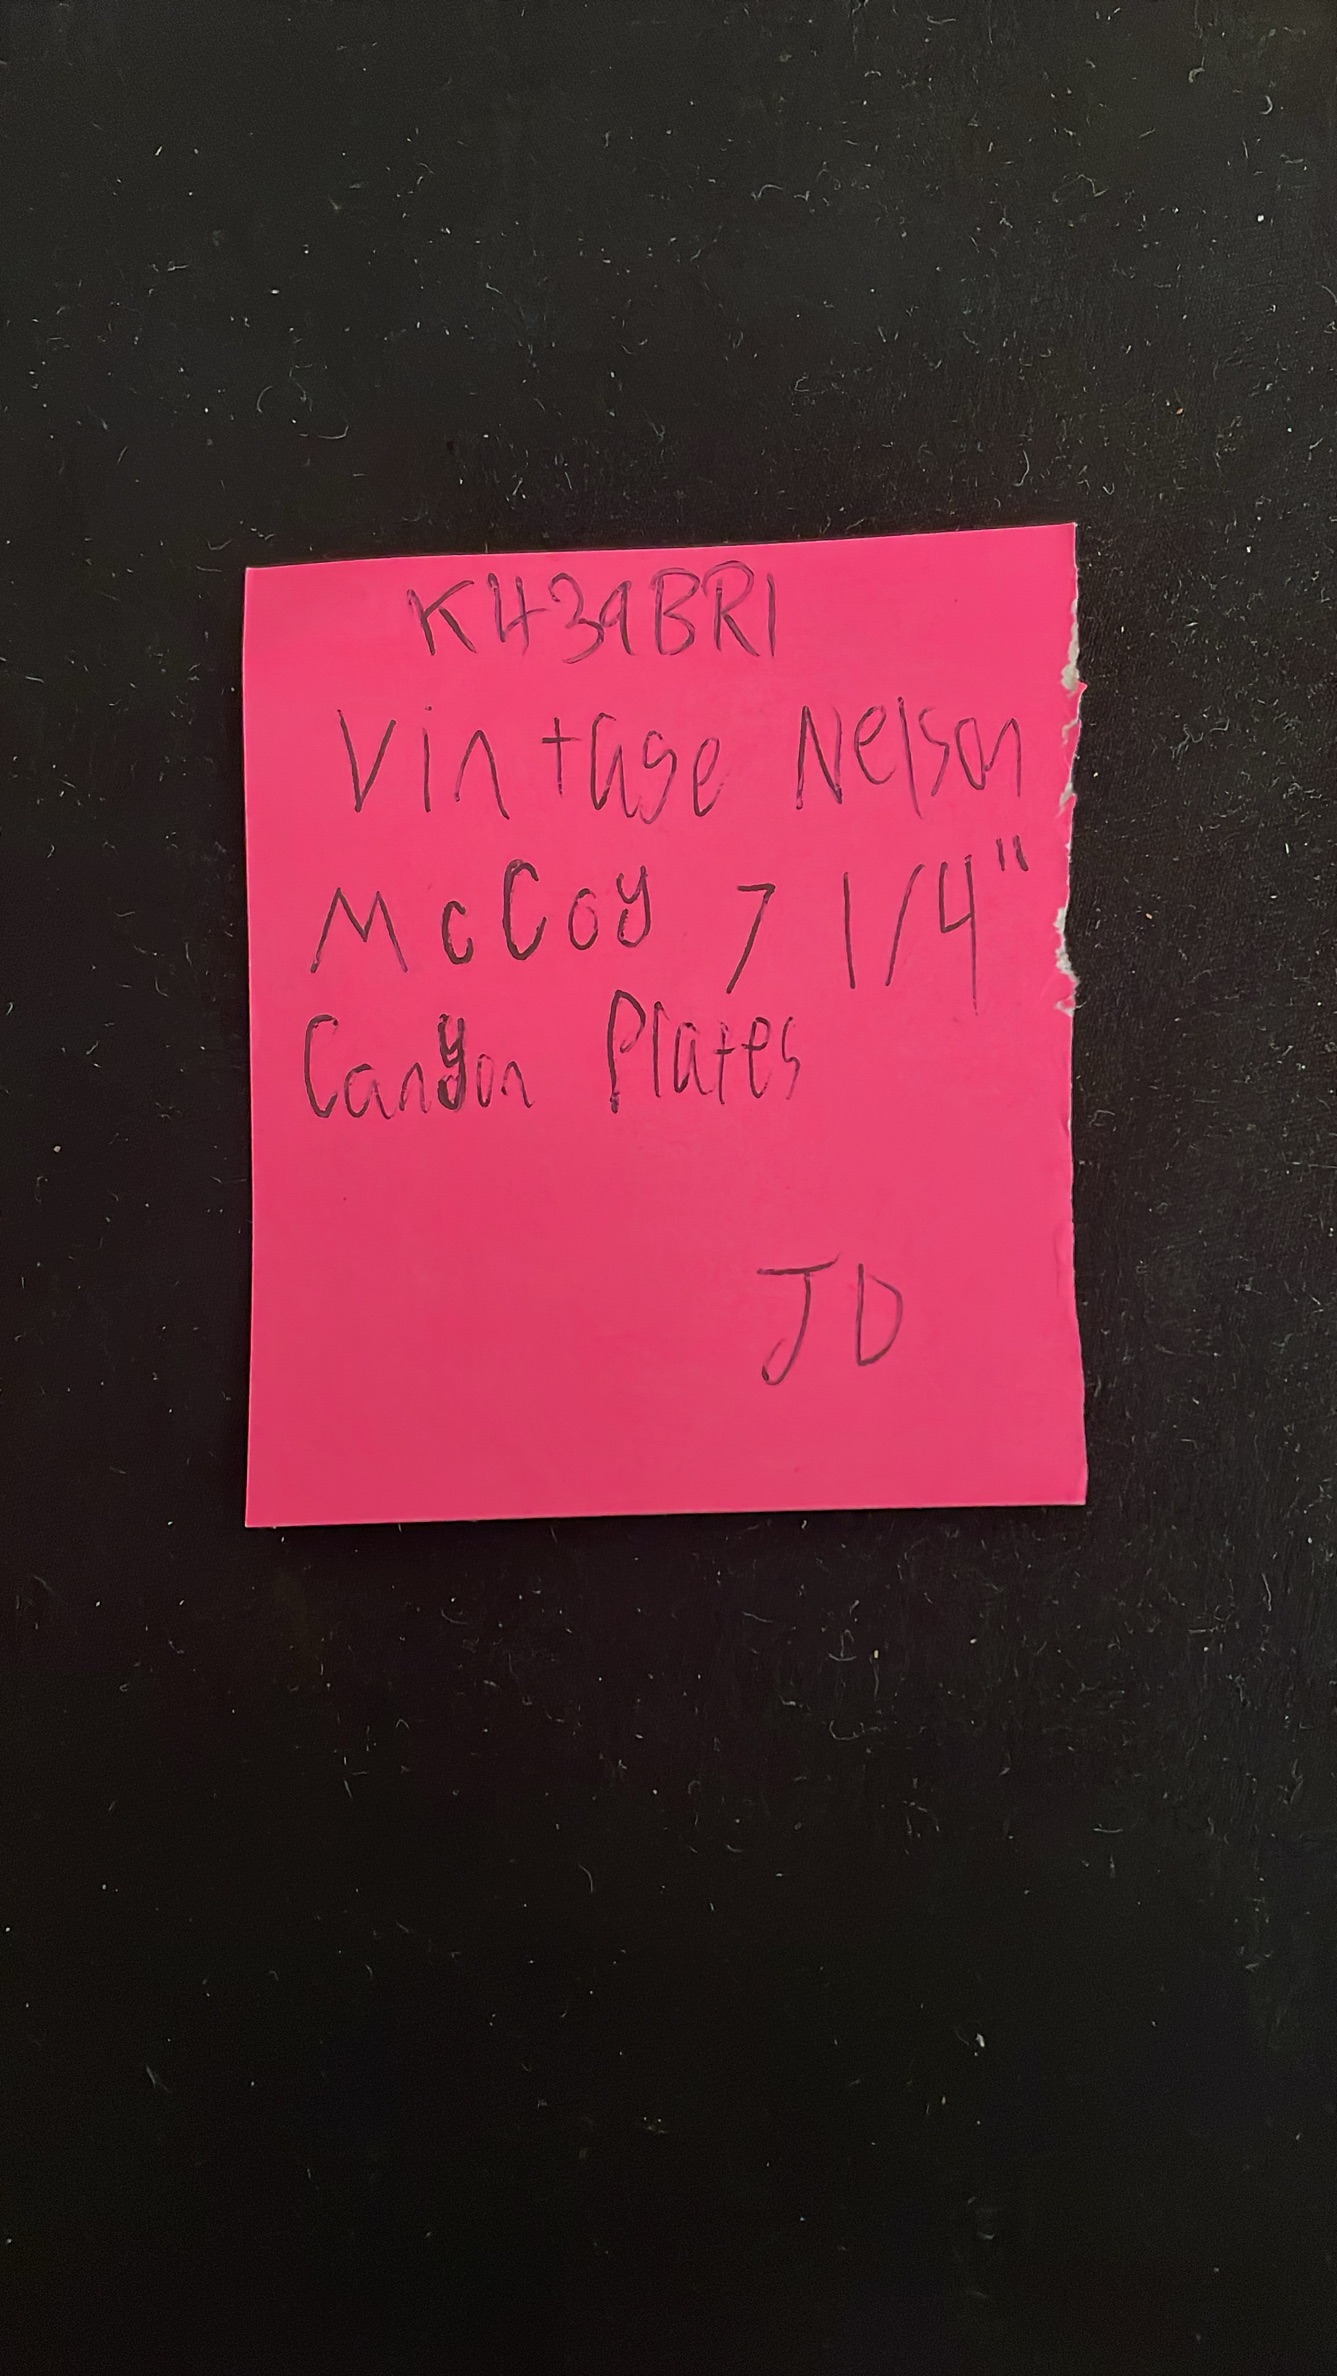 K439BR1
Vintage Nelson
McCoy 7 1/4"
Canyon Plates
JD